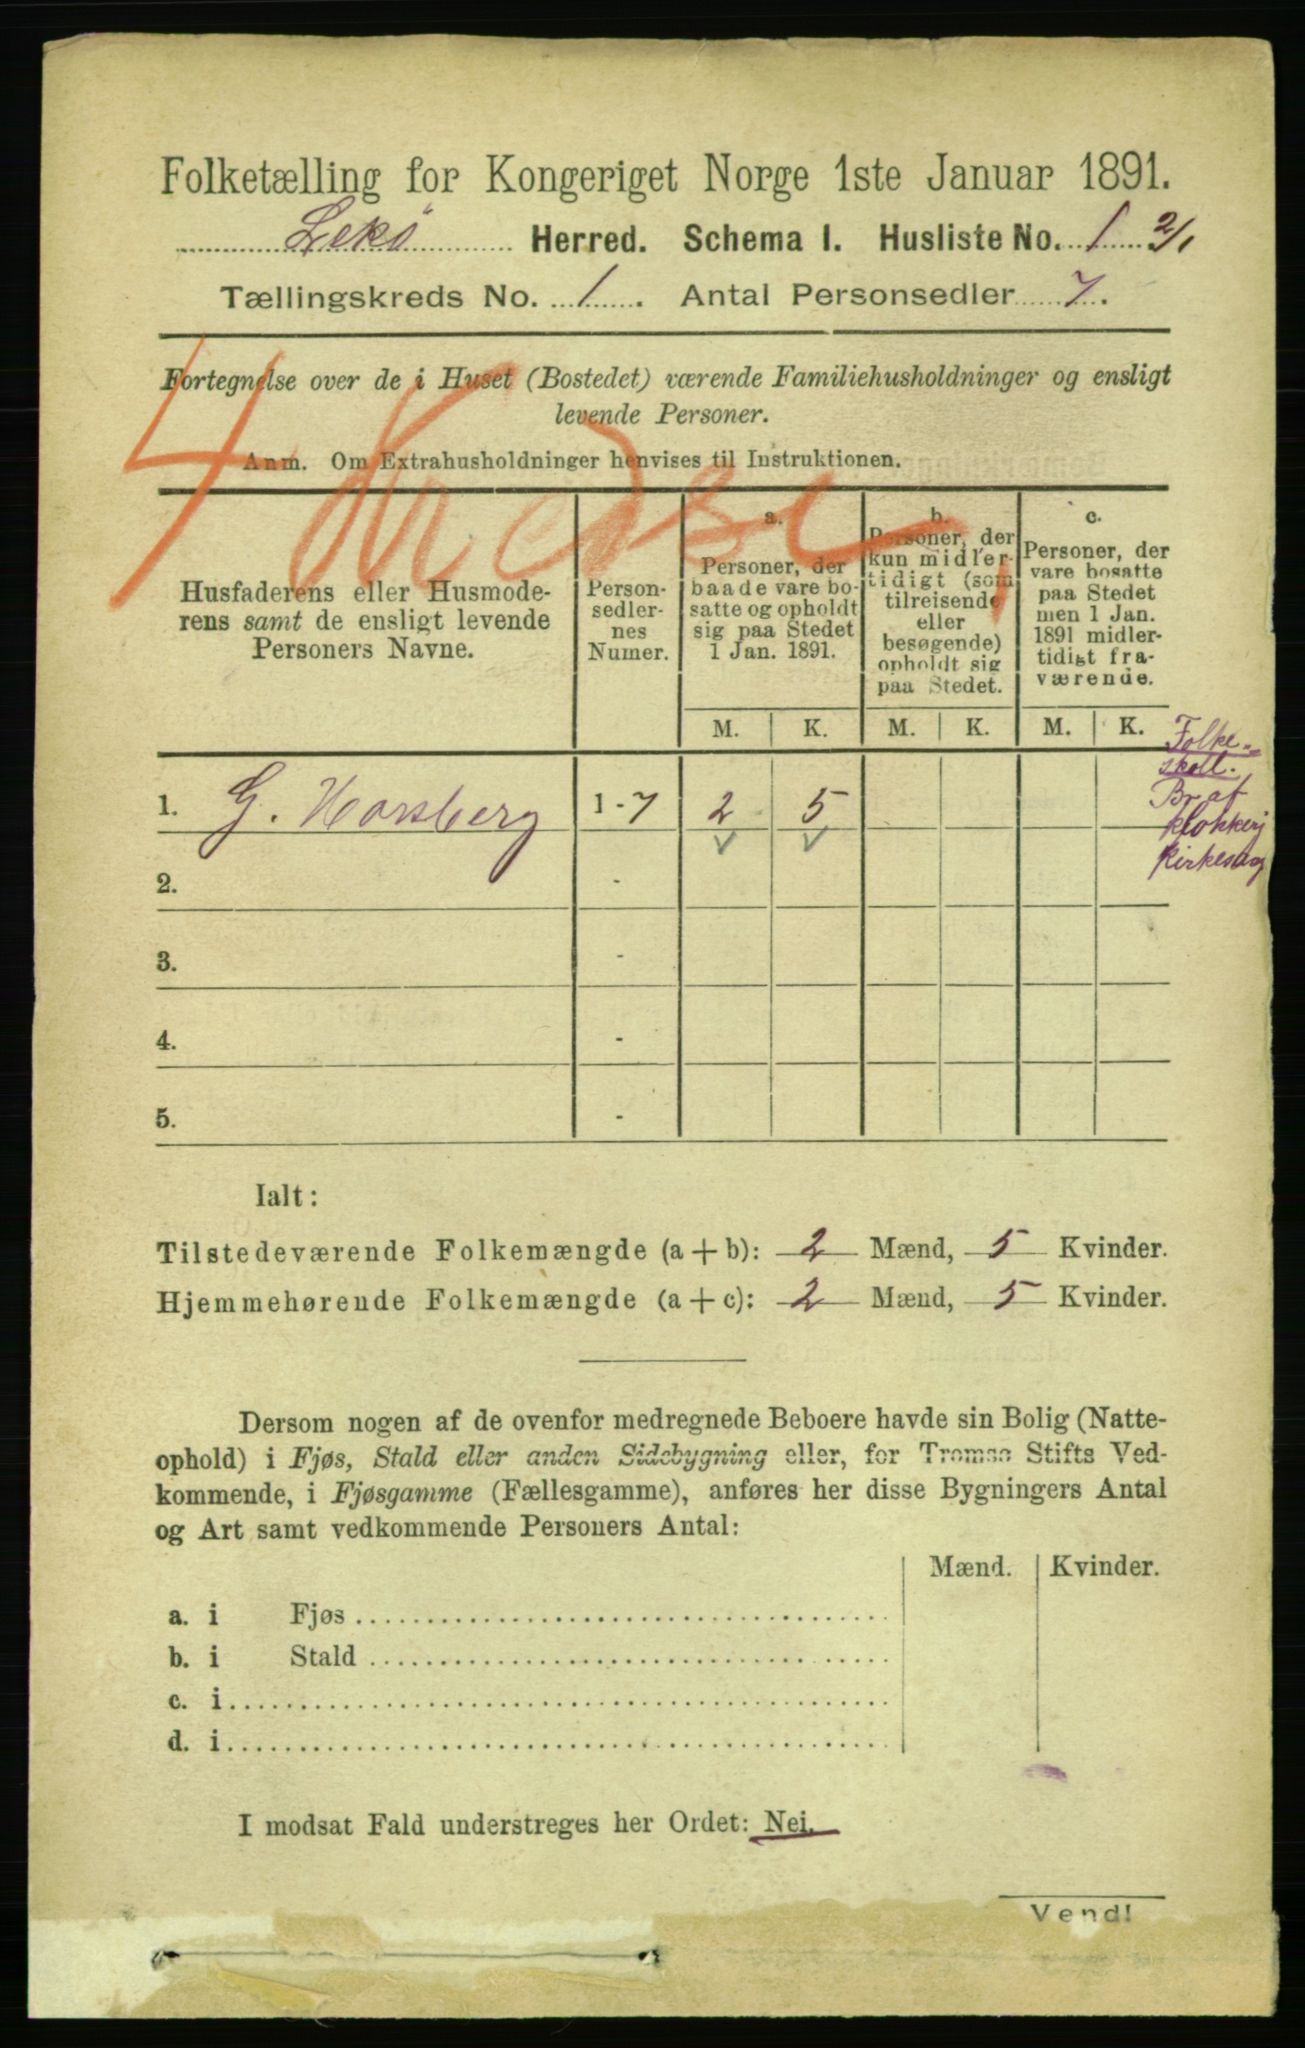 Folketælling for Kongeriget Norge 1ste Januar 1891.
Lekö Herred. Schema I. Husliste No. 1 2/1
Tællingskreds No. 1. Antal Personsedler 7.
Fortegnelse over de i Huset (Bostedet) værende Familiehusholdninger og ensligt
levende Personer.
4
Anm. Om Extrahusholdninger henvises til Instruktionen.
Husfaderens eller Husmode-
rens samt de ensligt levende
Personers Navne.
Person-
sedler-
nes
Numer.
a.
Personer, der
baade vare bo-
satte og opholdt
sig paa Stedet
1 Jan. 1891.
b.
Personer, der
kun midler-
tidigt (som
tilreisende
eller
besøgende)
opholdt sig
paa Stedet.
c.
Personer, der
vare bosatte
paa Stedet
men 1 Jan.
1891 midler-
tidigt fra-
værende.
M. K. M. K. M. K.
1. G. Horsberg 1-7 2 5
Folke-
skoll.
Br af
klokkerj
Kirkesag
2. -
3. -
4. -
5. -
Ialt:
Tilstedeværende Folkemængde (a+b): 2 Mænd, 5 Kvinder.
Hjemmehørende Folkemængde (a+c): 2 Mænd, 5 Kvinder.
Dersom nogen af de ovenfor medregnede Beboere havde sin Bolig (Natte-
ophold) i Fjøs, Stald eller anden Sidebygning eller, for Tromsø Stifts Ved-
kommende, i Fjøsgamme (Fællesgamme), anføres her disse Bygningers Antal
og Art samt vedkommende Personers Antal:
Mænd. Kvinder.
a. i Fjøs
b. i Stald
c. i
d. i
I modsat Fald understreges her Ordet: Nei.
Vend!